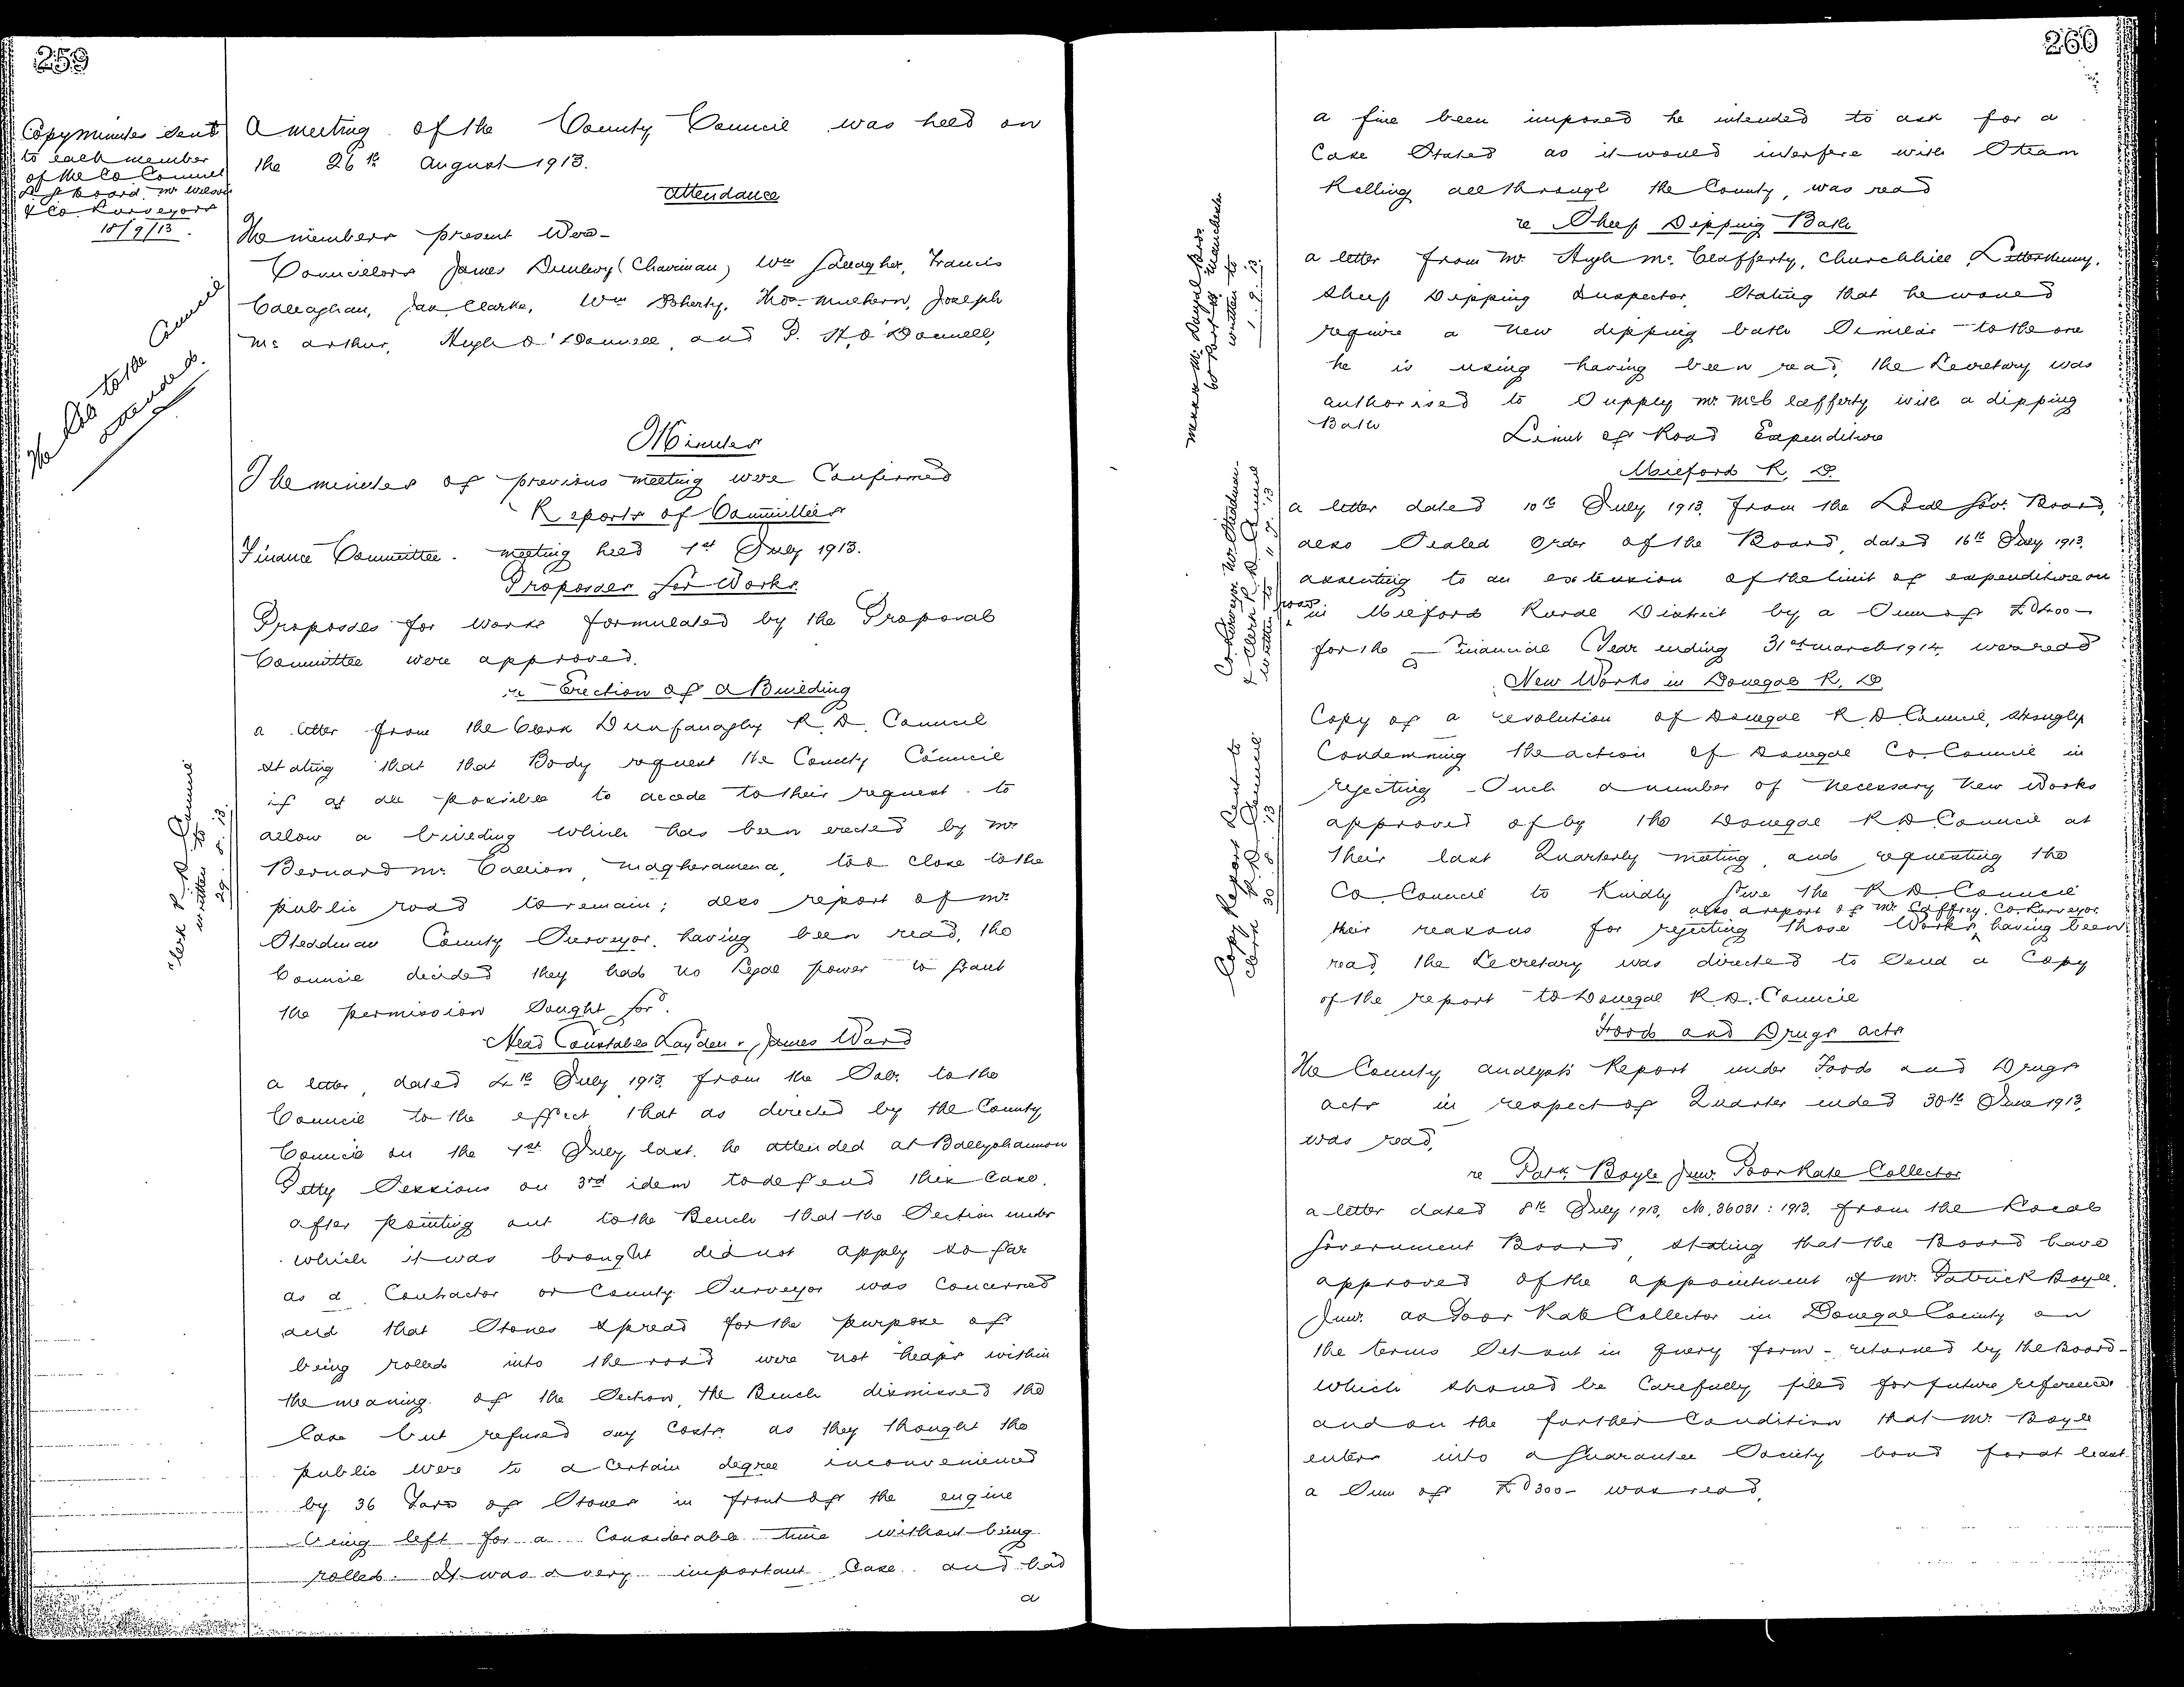 259
Copy minutes sent
to each member
of the Co Council
L. G. Board. Mr Wilson
& Co. Surveyors
18/9/13.
A meeting of the County Council was held on
the 26th August 1913.
Attendance
The members present were-
Councillors James Dunlevy (Chairman) Wm Gallagher, Francis
Callaghan, Jas Clarke, Wm Doherty, Thos Mulhern, Joseph
McArthur, Hugh O'Donnell, and P. H. O'Donnell,
to the Council
Minutes
The minutes of previous meeting were Confirmed
Reports of Committees
Finance Committee. meeting held 1st July 1913.
Proposals for Works
Proposals for Works formulated by the Proposal
Committee were approved.
re Erection of a Building
a letter from the Clerk Dunfanaghy R. D. Council
stating that that Body request the County Council
if at all possible to accede to their request to
allow a building which has been erected by Mr
Bernard Mc Callion, Magheramena, too close to the
public road to remain; also report of Mr
Steadman County Surveyor. having been read, the
Council decided they had no legal power to grant
the permission sought for.
Clerk R. D. Council
written to
29. 8. 13.
Head Constable Layden v. James Ward
a letter, dated 4th July 1913, from the Solr. to the
Council to the effect that as directed by the County
Council on the 1st July last. he attended at Ballyshannon
Petty Sessions on 3rd idem to defend this Case.
after pointing out to the Bench that the Section under
which it was brought did not apply so far
as a Contractor or County Surveyor was Concerned
and that Stones spread for the purpose of
being rolled into the road were not "heaps" within
the meaning of the Section, the Bench dismissed the
Case but refused any Costs as they thought the
public were to a Certain degree inconvenienced
by 36 Tons of Stones in front of the engine
being left for a Considerable time without being
rolled. It was a very important Case and had
a
260
a fine been imposed he intended to ask for a
Case Stated as it would interfere with Steam
Rolling all through the County, was read
re Sheep Dipping Bath
a letter from Mr Hugh Mc Clafferty, Churchhill, Letterkenny,
Sheep Dipping Inspector, Stating that he would
require a new dipping bath Similar to the one
he is using having been read, the Secretary was
authorised to Supply Mr McClafferty with a dipping
Bath
Messrs Mc Dougall Bros.
Manchester
written to
1. 9. 13.
Limit of Road Expenditure
Milford R. D.
a letter dated 10th July 1913, from the Local Gov. Board,
also Sealed Order of the Board, dated 16th July 1913,
assenting to an extension of the limit of expenditure on
roads in Milford Rural District by a Sum of £400-
for the Financial Year ending 31st March 1914, were read
Co. Surveyor Mr Steadman
& Clerk R. D. Council
written to 11. 9. 13
New Works in Donegal R. D.
Copy of a resolution of Donegal R D Council, strongly
Condemning the action of Donegal Co. Council in
rejecting Such a number of necessary new Works
approved of by the Donegal R.D. Council at
their last Quarterly meeting, and requesting the
Co. Council to Kindly Give the R D. Council
also a report of Mr Caffrey. Co. Surveyor
their reasons for rejecting those Works, having been
read, the Secretary was directed to Send a Copy
of the report to Donegal R.D. Council
Copy Report Sent to
Clerk R. D. Council
30. 8. 13
Foods and Drugs Acts
The County Analyst's Report under Foods and Drugs
acts in respect of Quarter ended 30th June 1913,
was read,
re Patk. Boyle Junr. Poor Rate Collector
a letter dated 8th July 1913, No. 36031: 1913, from the Local
Government Board, stating that the Board have
approved of the appointment of Mr. Patrick Boyle,
Junr. as Poor Rate Collector in Donegal County on
the terms Set out in query form - returned by the Board -
which should be Carefully filed for future reference
and on the further Condition that Mr Boyle
enters into a Guarantee Society bond for at least
a Sum of £300- was read,